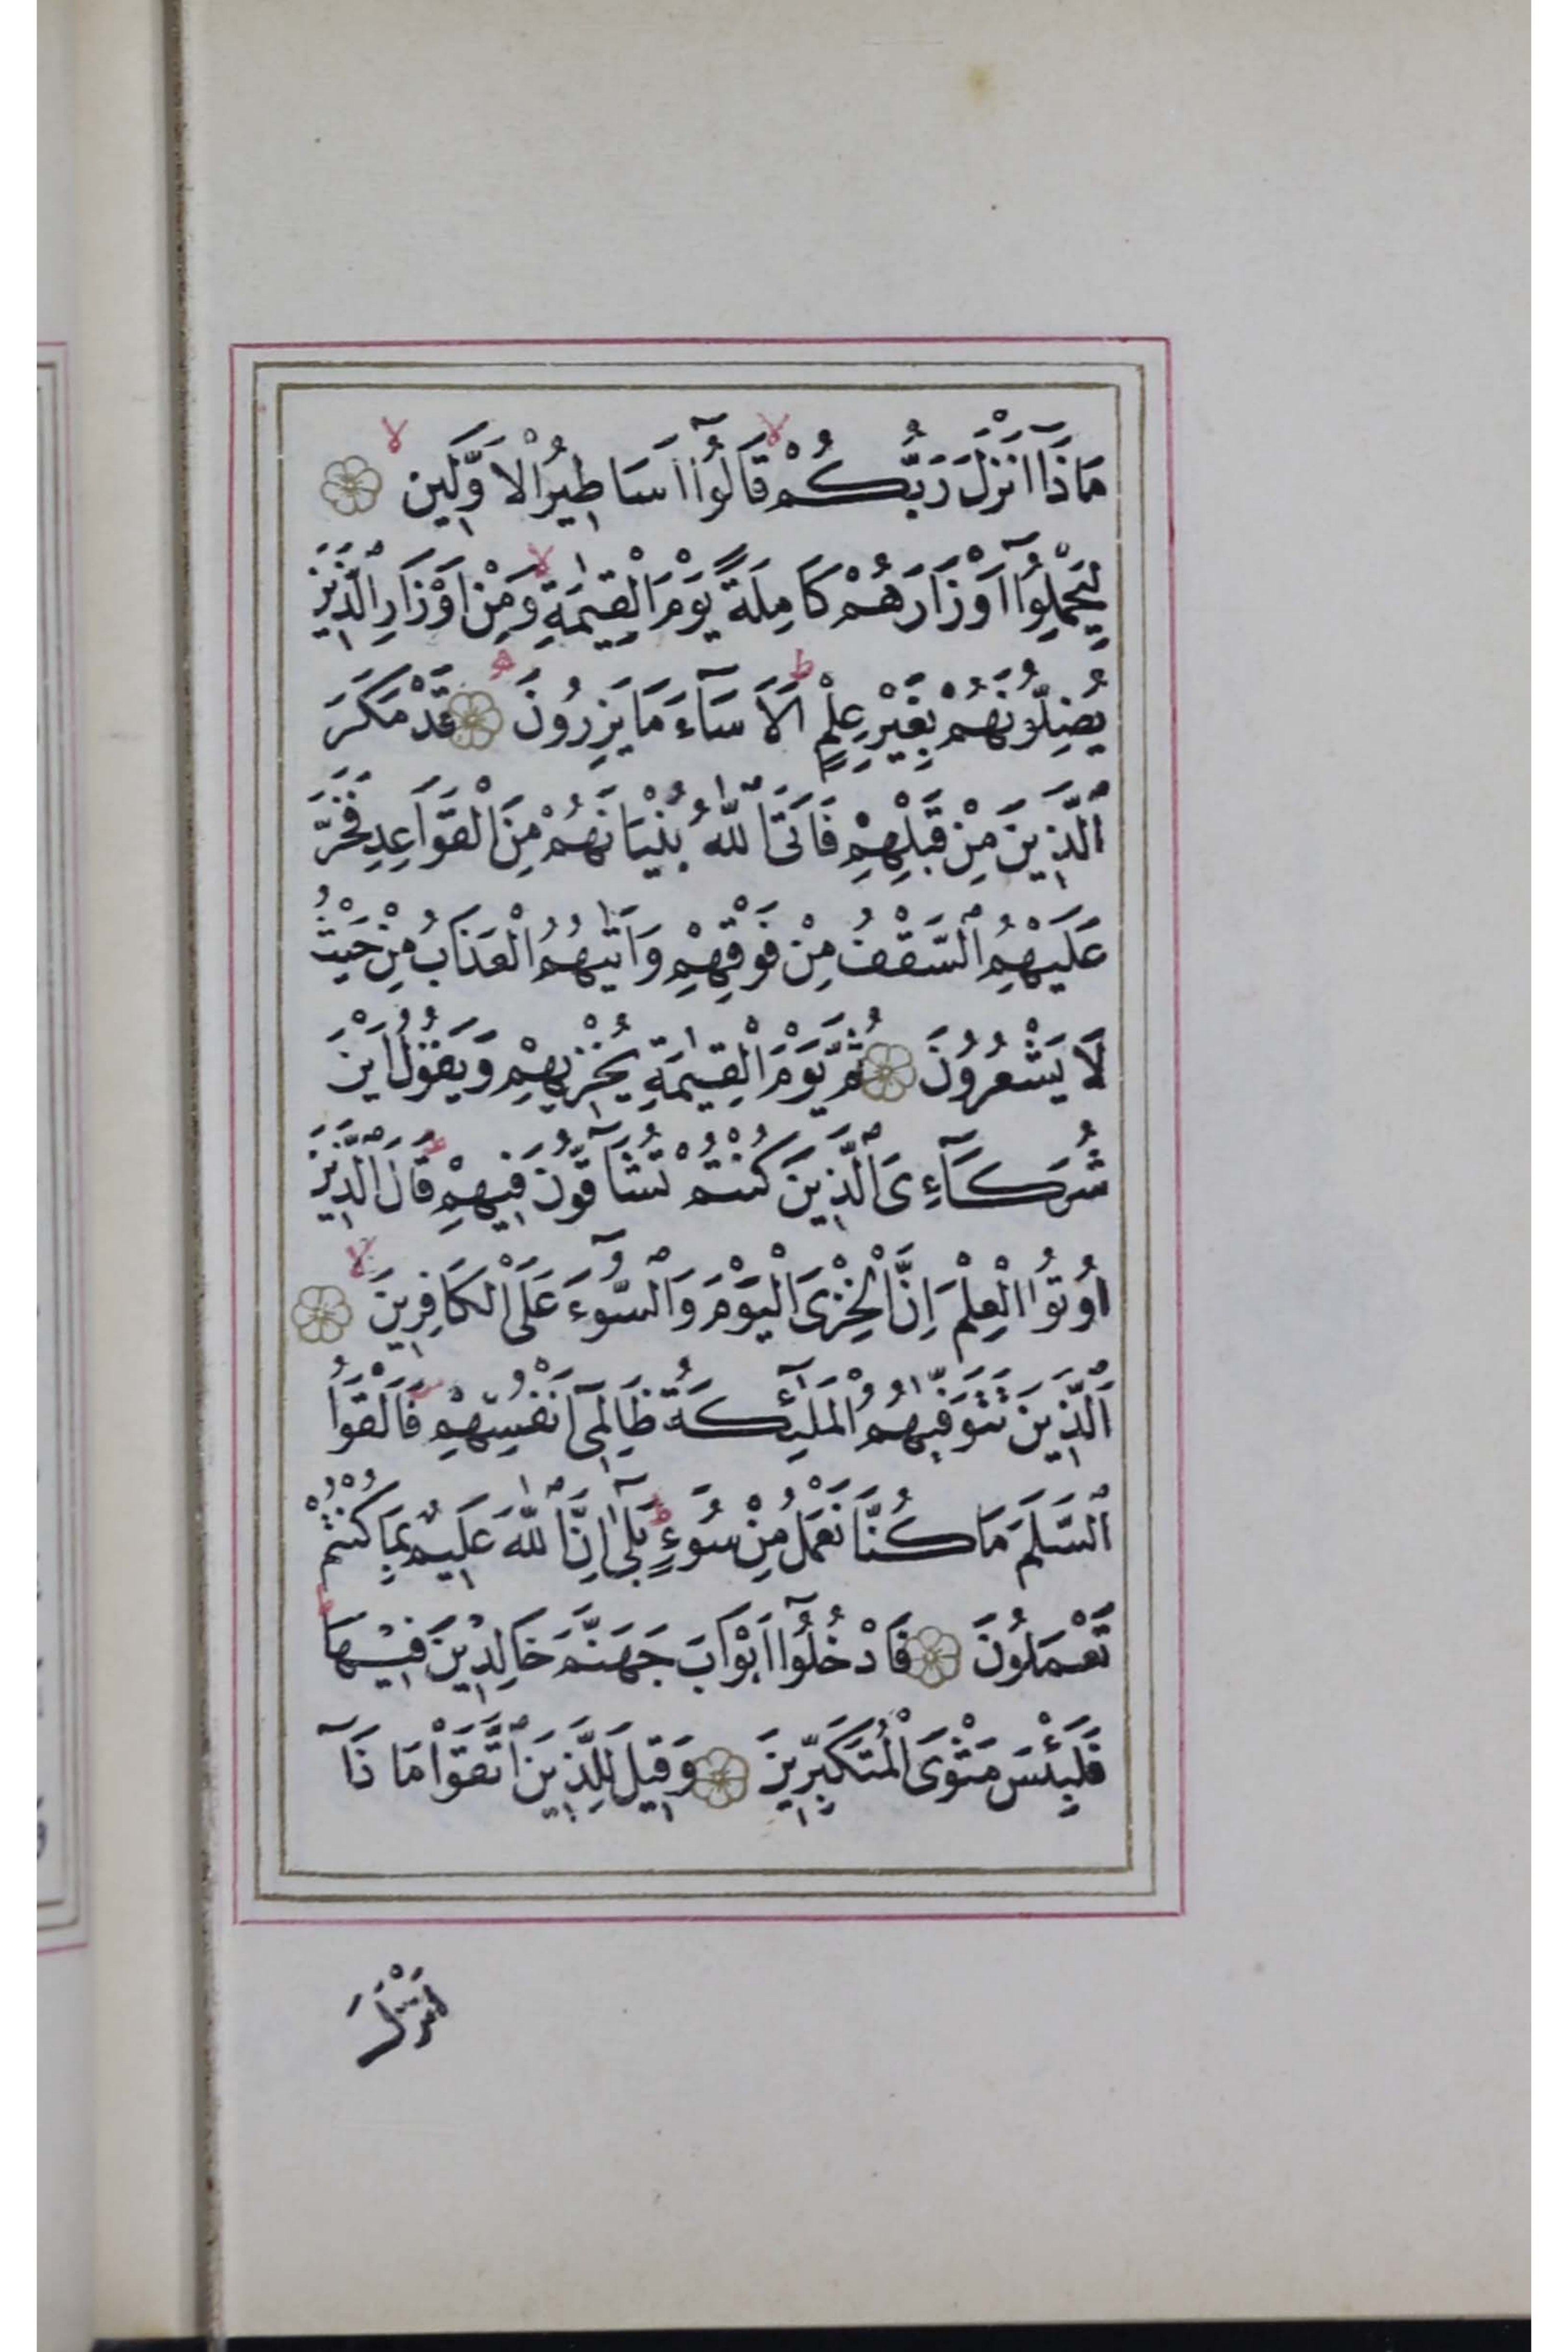 مَاذَٓا اَنْزَلَ رَبُّكُمْ قَالُٓوا اَسَاطِيرُ الْاَوَّلِين
لِيَحْمِلُٓوا اَوْزَارَهُمْ كَامِلَةً يَوْمَ الْقِيٰمَةِ وَمِنْ اَوْزَارِ الَّذِينَ
يُضِلُّونَهُمْ بِغَيْرِ عِلْمٍ اَلَا سَٓاءَ مَا يَزِرُونَ قَدْ مَكَرَ
الَّذِينَ مِنْ قَبْلِهِمْ فَاَتَى اللّٰهُ بُنْيَانَهُمْ مِنَ الْقَوَاعِدِ فَخَرَّ
عَلَيْهِمُ السَّقْفُ مِنْ فَوْقِهِمْ وَاَتٰيهُمُ الْعَذَابُ مِنْ حَيْثُ
لَا يَشْعُرُونَ ثُمَّ يَوْمَ الْقِيٰمَةِ يُخْزِيهِمْ وَيَقُولُ اَيْنَ
شُرَكَٓاءِىَ الَّذِينَ كُنْتُمْ تُشَٓاقُّونَ فِيهِمْ قَالَ الَّذِينَ
اُوتُوا الْعِلْمَ اِنَّ الْخِزْىَ الْيَوْمَ وَالسُّٓوءَ عَلَى الْكَافِرِينَ
اَلَّذِينَ تَتَوَفّٰيهُمُ الْمَلٰٓئِكَةُ ظَالِمِٓى اَنْفُسِهِمْ فَاَلْقَوُا
السَّلَمَ مَا كُنَّا نَعْمَلُ مِنْ سُٓوءٍ بَلٰٓى اِنَّ اللّٰهَ عَلِيمٌ بِمَا كُنْتُمْ
تَعْمَلُونَ فَادْخُلُٓوا اَبْوَابَ جَهَنَّمَ خَالِدِينَ فِيهَا
فَلَبِئْسَ مَثْوَى الْمُتَكَبِّرِينَ وَقِيلَ لِلَّذِينَ اتَّقَوْا مَاذَٓا
اَنْزَلَ